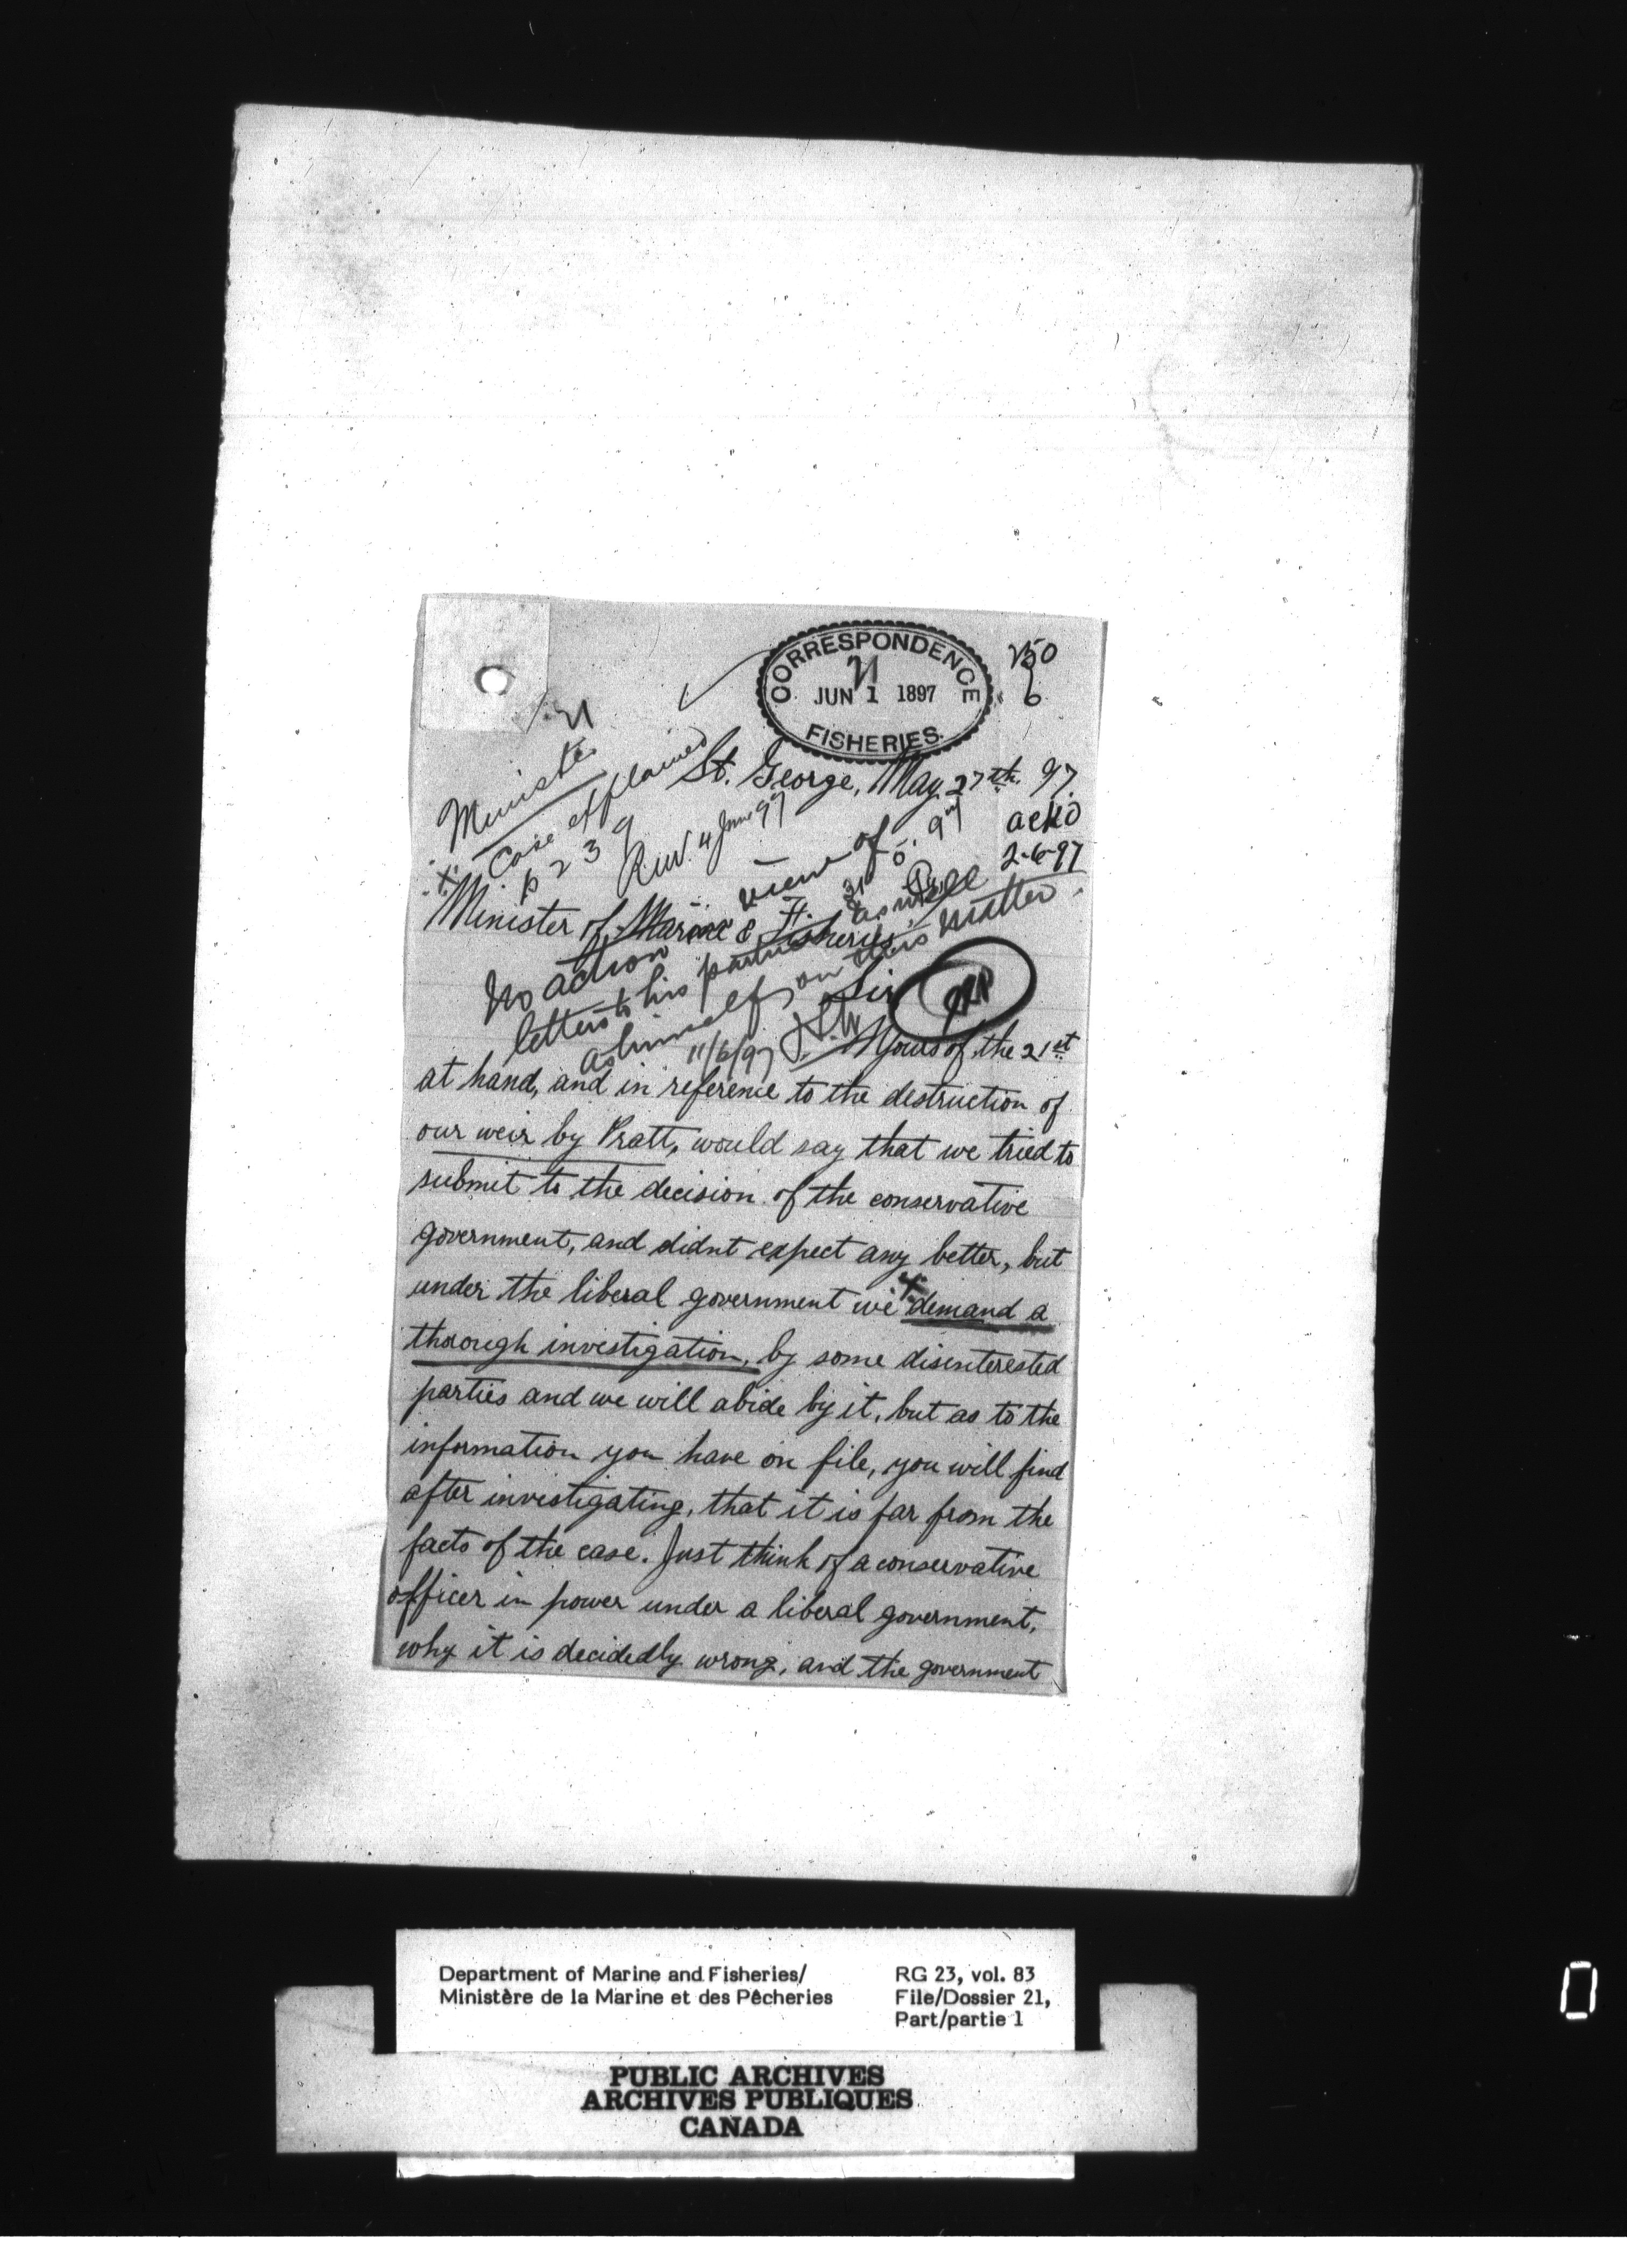 CORRESPONDENCE
21
JUN 1 1897
FISHERIES.
250
6
21
Minister
Case explained
p 239
R.W. 4 June 97
St. George, May 27th. 97.
ackd
2-6-97
Minister of Marine & Fisheries.
No action view of
letters to his partner as well
as himself on this matter.
11/6/97
Sir
Yours of the 21st
at hand, and in reference to the destruction of
our weir by Pratt, would say that we tried to
submit to the decision of the conservative
government, and didnt expect any better, but
under the liberal government we demand a
thorough investigation, by some disinterested
parties and we will abide by it, but as to the
information you have on file, you will find
after investigating, that it is far from the
facts of the case. Just think of a conservative
officer in power under a liberal government,
why it is decidedly wrong, and the government
Department of Marine and Fisheries/
Ministère de la Marine et des Pêcheries
RG 23, vol. 83
File/Dossier 21,
Part/partie 1
PUBLIC ARCHIVES
ARCHIVES PUBLIQUES
CANADA